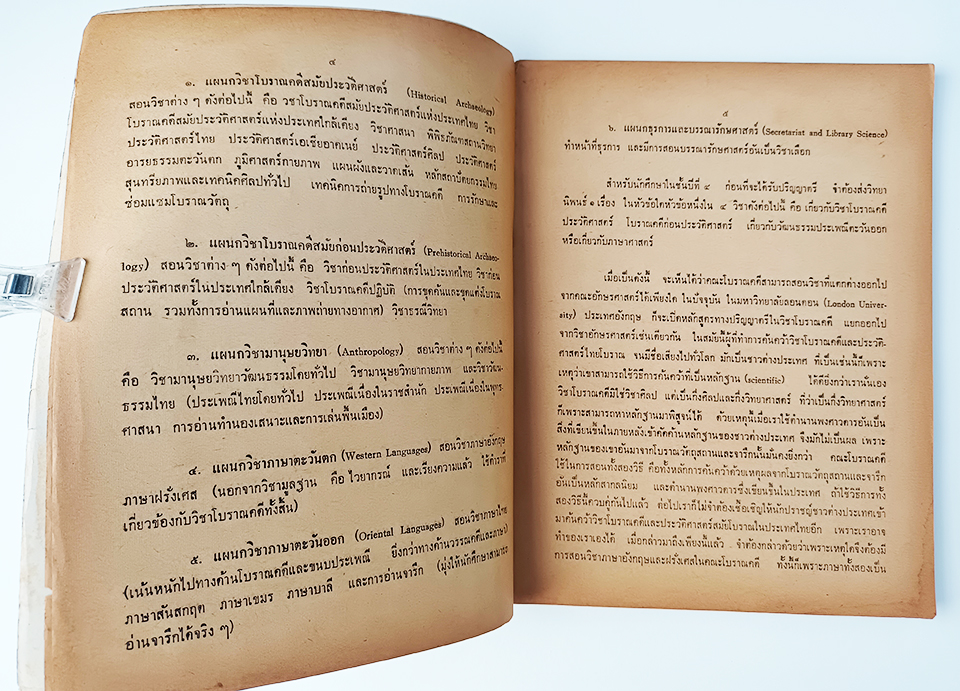 ๔
๑. แผนกวิชาโบราณคดีสมัยประวัติศาสตร์ (Historical Archaeology)
สอนวิชาต่าง ๆ ดังต่อไปนี้ คือ วิชาโบราณคดีสมัยประวัติศาสตร์แห่งประเทศไทย วิชา
โบราณคดีสมัยประวัติศาสตร์แห่งประเทศใกล้เคียง วิชาศาสนา พิพิธภัณฑสถานวิทยา
ประวัติศาสตร์ไทย ประวัติศาสตร์เอเซียอาคเนย์ ประวัติศาสตร์ศิลป ประวัติศาสตร์
อารยธรรมตะวันตก ภูมิศาสตร์กายภาพ แผนผังและวาดเส้น หลักสถาปัตยกรรมไทย
สุนทรียภาพและเทคนิคศิลปทั่วไป เทคนิคการถ่ายรูปทางโบราณคดี การรักษาและ
ซ่อมแซมโบราณวัตถุ
๒. แผนกวิชาโบราณคดีสมัยก่อนประวัติศาสตร์ (Prehistorical Archaeo-
logy) สอนวิชาต่าง ๆ ดังต่อไปนี้ คือ วิชาก่อนประวัติศาสตร์ในประเทศไทย วิชาก่อน
ประวัติศาสตร์ในประเทศใกล้เคียง วิชาโบราณคดีปฏิบัติ (การขุดค้นและขุดแต่งโบราณ
สถาน รวมทั้งการอ่านแผนที่และภาพถ่ายทางอากาศ) วิชาธรณีวิทยา
๓. แผนกวิชามานุษยวิทยา (Anthropology) สอนวิชาต่าง ๆ ดังต่อไปนี้
คือ วิชามานุษยวิทยาวัฒนธรรมโดยทั่วไป วิชามานุษยวิทยากายภาพ และวิชาวัฒน-
ธรรมไทย (ประเพณีไทยโดยทั่วไป ประเพณีเนื่องในราชสำนัก ประเพณีเนื่องในพุทธ-
ศาสนา การอ่านทำนองเสนาะและการเล่นพื้นเมือง)
๔. แผนกวิชาภาษาตะวันตก (Western Languages) สอนวิชาภาษาอังกฤษ
ภาษาฝรั่งเศส (นอกจากวิชามูลฐาน คือ ไวยากรณ์ และเรียงความแล้ว ใช้ตำราที่
เกี่ยวข้องกับวิชาโบราณคดีทั้งสิ้น)
๕. แผนกวิชาภาษาตะวันออก (Oriental Languages) สอนวิชาภาษาไทย
(เน้นหนักไปทางด้านโบราณคดีและขนบประเพณี ยิ่งกว่าทางด้านวรรณคดีและภาษา)
ภาษาสันสกฤต ภาษาเขมร ภาษาบาลี และการอ่านจารึก (มุ่งให้นักศึกษาสามารถ
อ่านจารึกได้จริง ๆ)
๕
๖. แผนกธุรการและบรรณารักษศาสตร์ (Secretariat and Library Science)
ทำหน้าที่ธุรการ และมีการสอนบรรณารักษศาสตร์อันเป็นวิชาเลือก
สำหรับนักศึกษาในชั้นปีที่ ๔ ก่อนที่จะได้รับปริญญาตรี จำต้องส่งวิทยา
นิพนธ์ ๑ เรื่อง ในหัวข้อใดหัวข้อหนึ่งใน ๔ วิชาดังต่อไปนี้ คือ เกี่ยวกับวิชาโบราณคดี
ประวัติศาสตร์ โบราณคดีก่อนประวัติศาสตร์ เกี่ยวกับวัฒนธรรมประเพณีตะวันออก
หรือเกี่ยวกับภาษาศาสตร์
เมื่อเป็นดังนี้ จะเห็นได้ว่าคณะโบราณคดีสามารถสอนวิชาที่แตกต่างออกไป
จากคณะอักษรศาสตร์ได้เพียงใด ในปัจจุบัน ในมหาวิทยาลัยลอนดอน (London Univer-
sity) ประเทศอังกฤษ ก็จะเปิดหลักสูตรทางปริญญาตรีในวิชาโบราณคดี แยกออกไป
จากวิชาอักษรศาสตร์เช่นเดียวกัน ในสมัยนี้ผู้ที่ทำการค้นคว้าวิชาโบราณคดีและประวัติ-
ศาสตร์ไทยโบราณ จนมีชื่อเสียงไปทั่วโลก มักเป็นชาวต่างประเทศ ที่เป็นเช่นนี้ก็เพราะ
เหตุว่าเขาสามารถใช้วิธีการค้นคว้าที่เป็นหลักฐาน (scientific) ได้ดียิ่งกว่าเรานั่นเอง
วิชาโบราณคดีมิใช่วิชาศิลป แต่เป็นกึ่งศิลปและกึ่งวิทยาศาสตร์ ที่ว่าเป็นกึ่งวิทยาศาสตร์
ก็เพราะสามารถหาหลักฐานมาพิสูจน์ได้ ด้วยเหตุนี้เมื่อเราใช้ตำนานพงศาวดารอันเป็น
สิ่งที่เขียนขึ้นในภายหลังเข้าคัดค้านหลักฐานของชาวต่างประเทศ จึงมักไม่เป็นผล เพราะ
หลักฐานของเขาอันมาจากโบราณวัตถุสถานและจารึกนั้นมั่นคงยิ่งกว่า คณะโบราณคดี
ใช้ในการสอนทั้งสองวิธี คือทั้งหลักการค้นคว้าด้วยเหตุผลจากโบราณวัตถุสถานและจารึก
อันเป็นหลักสากลนิยม และตำนานพงศาวดารซึ่งเขียนขึ้นในประเทศ ถ้าใช้วิธีการทั้ง
สองวิธีนี้ควบคู่กันไปแล้ว ต่อไปเราก็ไม่จำต้องเชื้อเชิญให้นักปราชญ์ชาวต่างประเทศเข้า
มาค้นคว้าวิชาโบราณคดีและประวัติศาสตร์สมัยโบราณในประเทศไทยอีก เพราะเราอาจ
ทำของเราเองได้ เมื่อกล่าวมาถึงเพียงนี้แล้ว จำต้องกล่าวด้วยว่าเพราะเหตุใดจึงต้องมี
การสอนวิชาภาษาอังกฤษและฝรั่งเศสในคณะโบราณคดี ทั้งนี้ก็เพราะภาษาทั้งสองเป็น